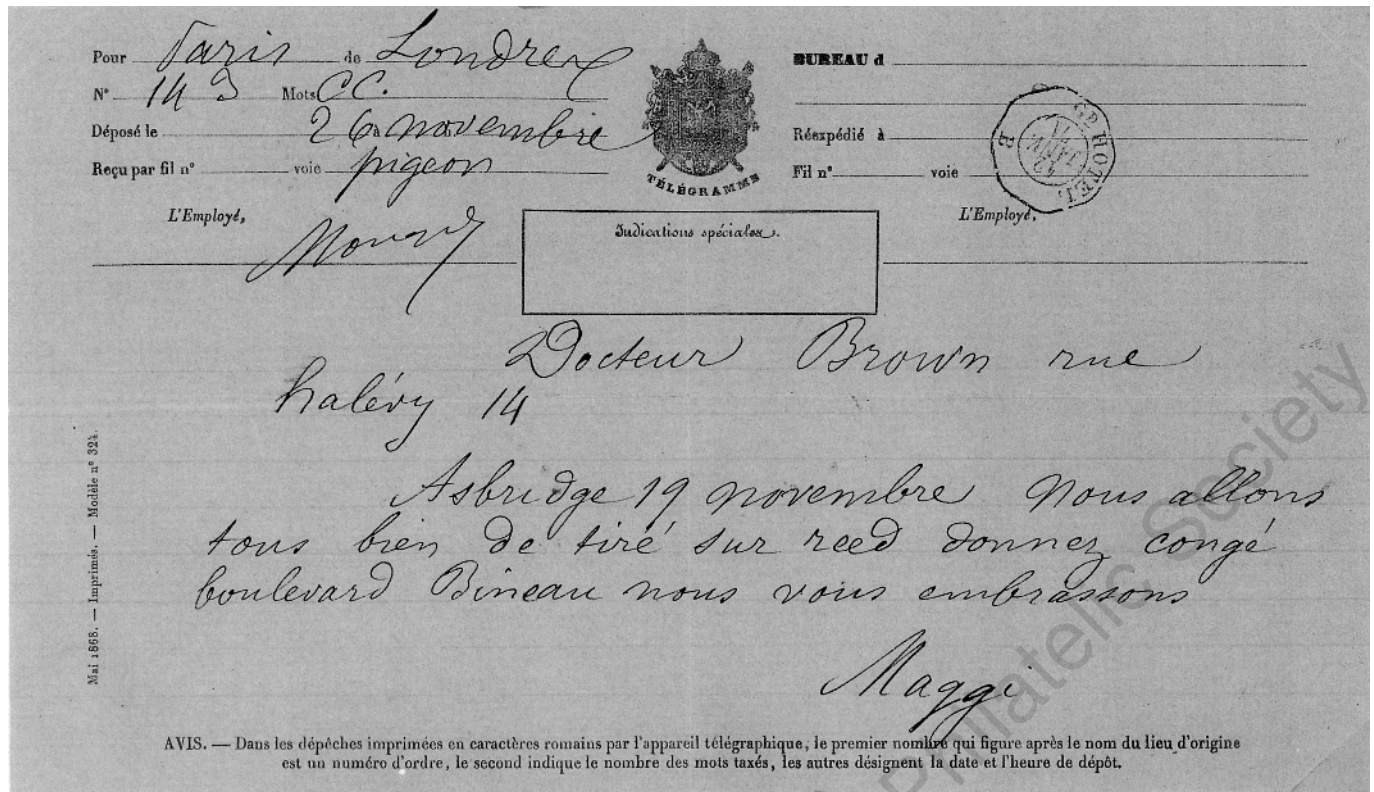 Pour Paris de Londres
N° 143 Mots CC.
Déposé le 26 à novembre
Reçu par fil n° voie pigeon
L'Employé,
TÉLÉGRAMME
BUREAU d
Réexpédié à
Fil n° voie
L'Employé,
Gd HOTEL
B
JANV.
71
Indications spéciales.
Docteur Brown rue
halévy 14
Asbridge 19 novembre Nous allons
tous bien de tiré sur reed donnez congé
boulevard Bineau nous vous embrassons
Maggi
Mai 1868. — Imprimés. — Modèle n° 324.
AVIS. — Dans les dépêches imprimées en caractères romains par l'appareil télégraphique, le premier nombre qui figure après le nom du lieu d'origine
est un numéro d'ordre, le second indique le nombre des mots taxés, les autres désignent la date et l'heure de dépôt.
Philatelic Society